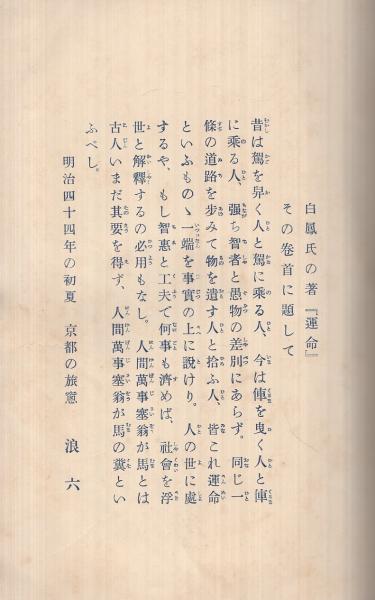 白鳳氏の著『運命』
その卷首に題して
昔は駕を舁く人と駕に乘る人、今は俥を曳く人と俥
に乘る人、强ち智者と愚物の差別にあらず。同じ一
條の道路を步みて物を遺す人と拾ふ人、皆これ運命
といふものゝ一端を事實の上に說けり。人の世に處
するや、もし智惠と工夫で何事も濟めば、社會を浮
世と解釋するの必用もなし。人間萬事塞翁が馬とは
古人いまだ其要を得ず、人間萬事塞翁が馬の糞とい
ふべし。
明治四十四年の初夏 京都の旅窓 浪六